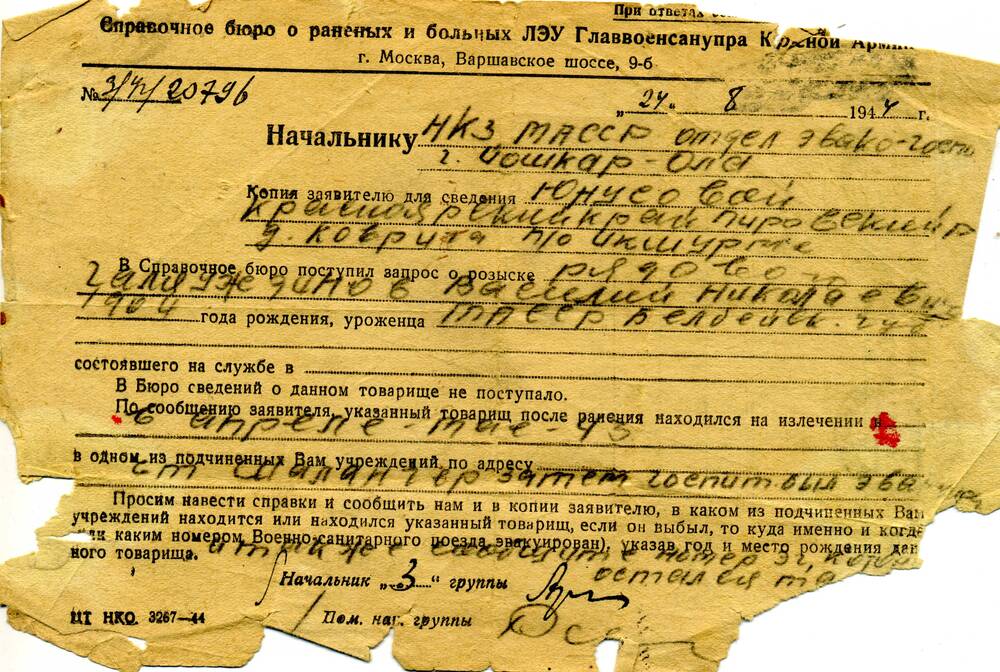 При ответах
Справочное бюро о раненых и больных ЛЭУ Главвоенсанупра Красной Армии
г. Москва, Варшавское шоссе, 9-б
№ 3/4/20796 „24“ 8 1944 г.
Начальнику НКЗ МАССР отдел эвако-госп
г. Йошкар-Ола
Копия заявителю для сведения Юнусовой
Красноярский край Пировский р
д. Коврига п/о Икмурга
В Справочное бюро поступил запрос о розыске рядового
Василий Николаевич
1904 года рождения, уроженца
состоявшего на службе в
В Бюро сведений о данном товарище не поступало.
По сообщению заявителя, указанный товарищ после ранения находился на излечении в
в апреле-мае-43
в одном из подчиненных Вам учреждений по адресу
ст Шалангер затем госпит был эва
Просим навести справки и сообщить нам и в копии заявителю, в каком из подчиненных Вам
учреждений находится или находился указанный товарищ, если он выбыл, то куда именно и когда
каким номером Военно-санитарного поезда эвакуирован), указав год и место рождения дан
ного товарища. а также сообщите номер эг, котор
остался та
Начальник „3“ группы
Пом. нач. группы
ЦТ НКО. 3267—44